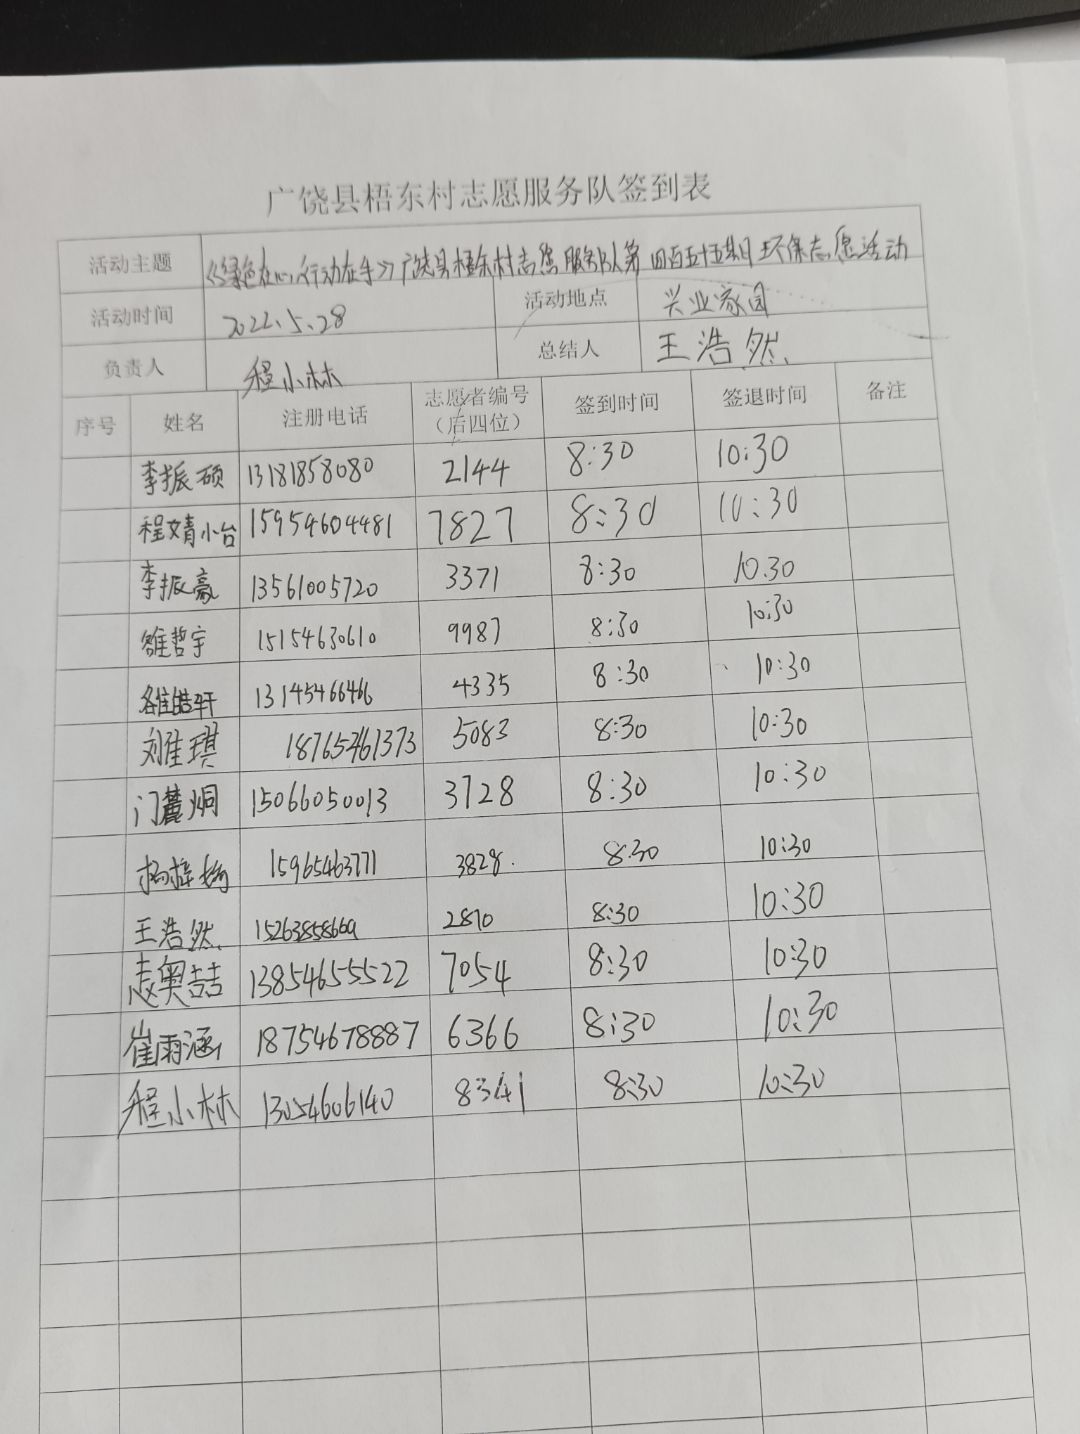 广饶县梧东村志愿服务队签到表
活动主题 《绿色在心,行动在手》广饶县梧东村志愿服务队第四百五十五期环保志愿活动
活动时间 2022.5.28 活动地点 兴业家园
负责人 程小林 总结人 王浩然
序号 姓名 注册电话 志愿者编号（后四位） 签到时间 签退时间 备注
李振硕 13181858080 2144 8:30 10:30
程文青小台 15954604481 7827 8:30 10:30
李振豪 13561005720 3371 8:30 10.30
雒哲宇 15154630610 9987 8:30 10:30
雒皓轩 13145466466 4335 8:30 10:30
刘佳琪 18765261373 5083 8:30 10:30
门麓炯 15066050013 3728 8:30 10:30
杨梓 15965463771 3828. 8:30 10:30
王浩然 15263858669 2870 8:30 10:30
奥喆 13854655522 7054 8:30 10:30
崔雨涵 18754678887 6366 8:30 10:30
程小林 13054606140 8341 8:30 10:30